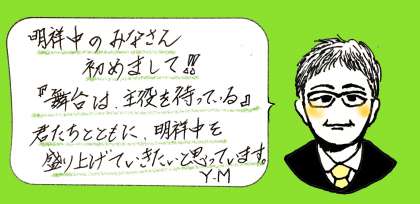 明祥中のみなさん
初めまして!!
『舞台は、主役を待っている』
君たちとともに、明祥中を
盛り上げていきたいと思っています。
Y-M